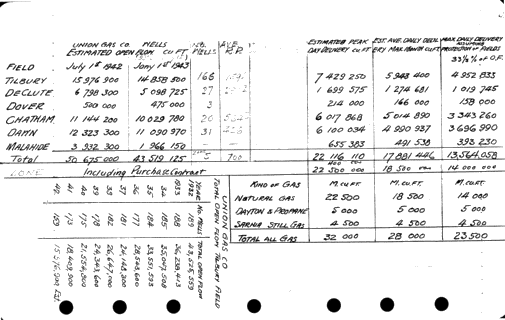 UNION GAS CO WELLS
ESTIMATED OPEN FLOW CU FT
ESTIMATED PEAK DAY DELIVERY CU FT
EST. AVE. DAILY DELIVERY MAX. MONTH CU FT
MAX. DAILY DELIVERY ASSUMING PROTECTION OF FIELDS
33⅓% OF O.F.
FIELD July 1st 1942 Jany 1st 1943
TILBURY 15 976 900 14 858 500 166 7 429 250 5 943 400 4 952 833
DeCLUTE 6 798 300 5 098 725 27 1 699 575 1 274 681 1 019 745
DOVER 500 000 475 000 3 214 000 166 000 158 000
CHATHAM 11 144 200 10 029 780 20 6 017 868 5 014 890 3 343 260
DAWN 12 323 300 11 090 970 31 6 100 034 4 990 937 3 696 990
MALAHIDE 3 932 300 1 966 150 655 383 491 538 393 230
Total 50 675 000 43 519 125 700 22 116 110 17 881 446 13,564,058
Including Purchase Contract 22 500 000 18 500 000 14 000 000
KIND OF GAS M.CU.FT. M.CU.FT. M.CU.FT.
NATURAL GAS 22 500 18 500 14 000
DAYTON & PROPANE 5 000 5 000 5 000
SARNIA STILL GAS 4 500 4 500 4 500
TOTAL ALL GAS 32 000 28 000 23 500
UNION GAS CO
TOTAL OPEN FLOW TILBURY FIELD
YEAR NO. WELLS TOTAL OPEN FLOW
1932 189 43,525,559
1933 188 36,239,413
34 185 35,047,508
35 184 33,551,593
36 177 28,543,600
37 181 24,148,200
38 182 26,647,000
39 178 24,343,600
40 175 21,554,800
41 173 18,409,900
42 169 15,976,900 Est